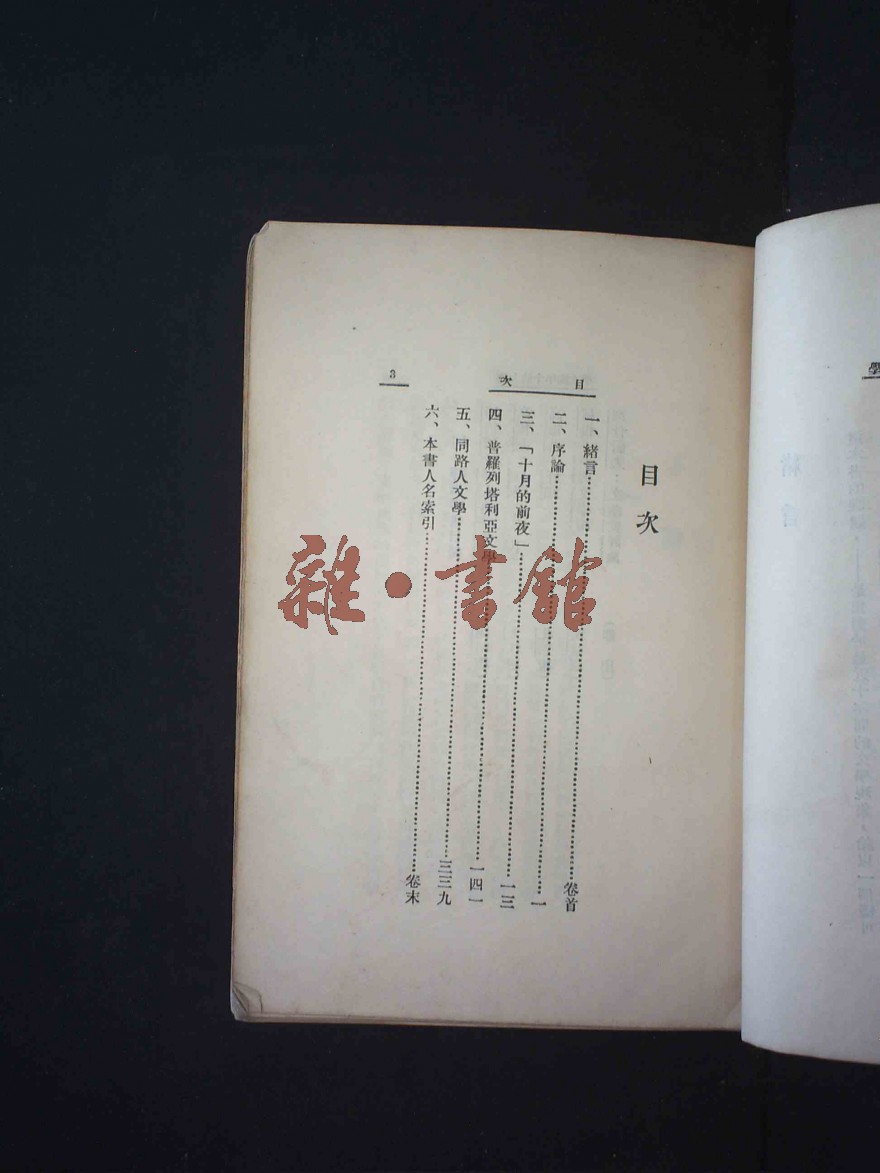 目次
3
目次
一、緒言……卷首
二、序論……一
三、「十月的前夜」……一三
四、普羅列塔利亞文學……一四一
五、同路人文學……三三九
六、本書人名索引……卷末
雜·書館
學
緒言